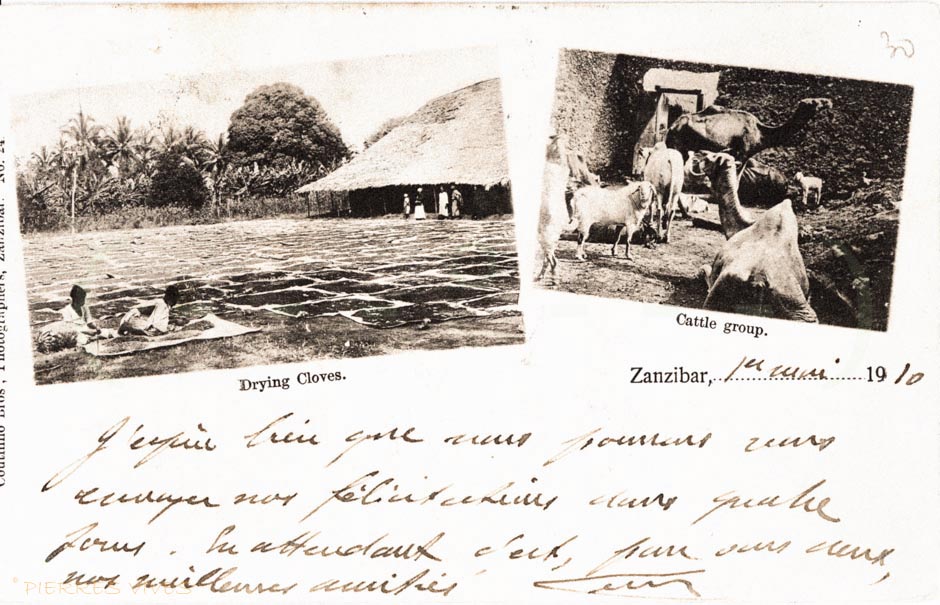 30
Coutinho Bros', Photographers, Zanzibar. No. 24
Drying Cloves.
Cattle group.
Zanzibar, 1er mai 1910
J'espère bien que nous pourrons vous
envoyer nos félicitations dans quatre
jours. En attendant c'est, pour vous deux,
nos meilleures amitiés
PIERRES VIVES